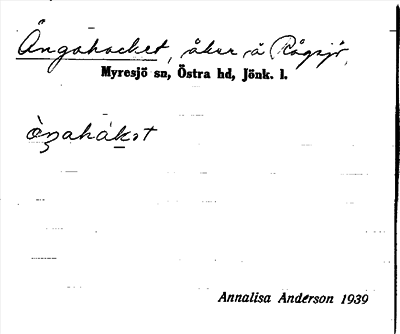 Ångahacket, åker å Rågsjö,
Myresjö sn, Östra hd, Jönk. l.
Annalisa Anderson 1939